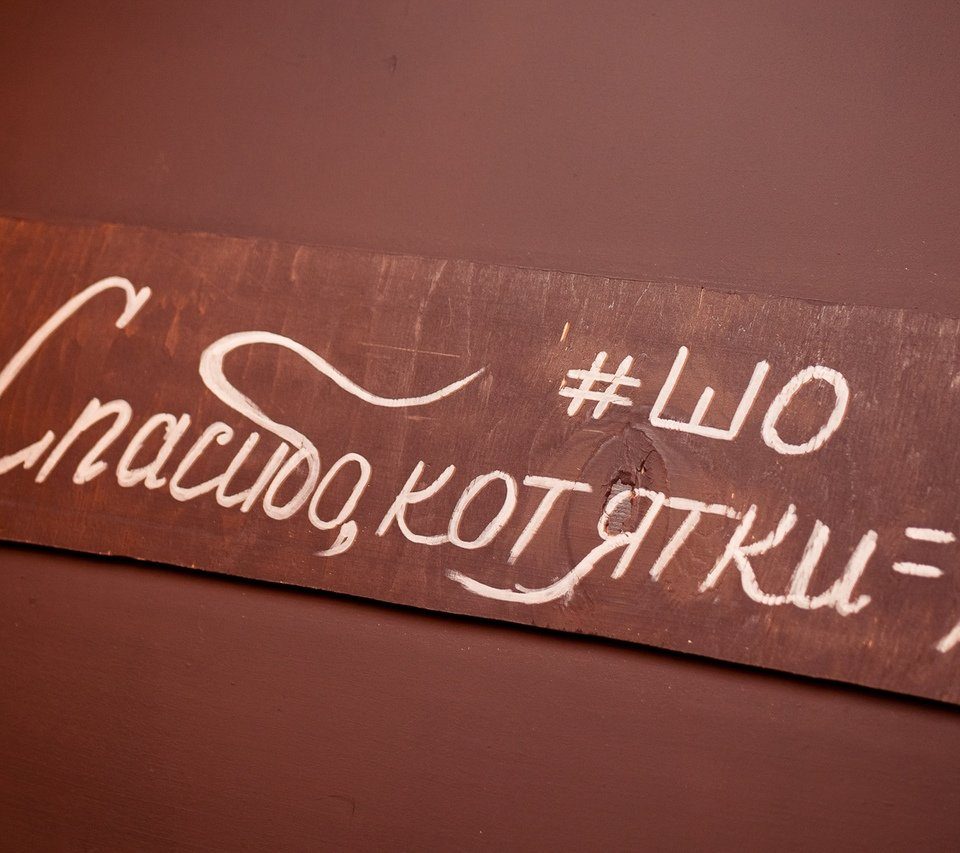 #ШО
Спасибо, котятки =